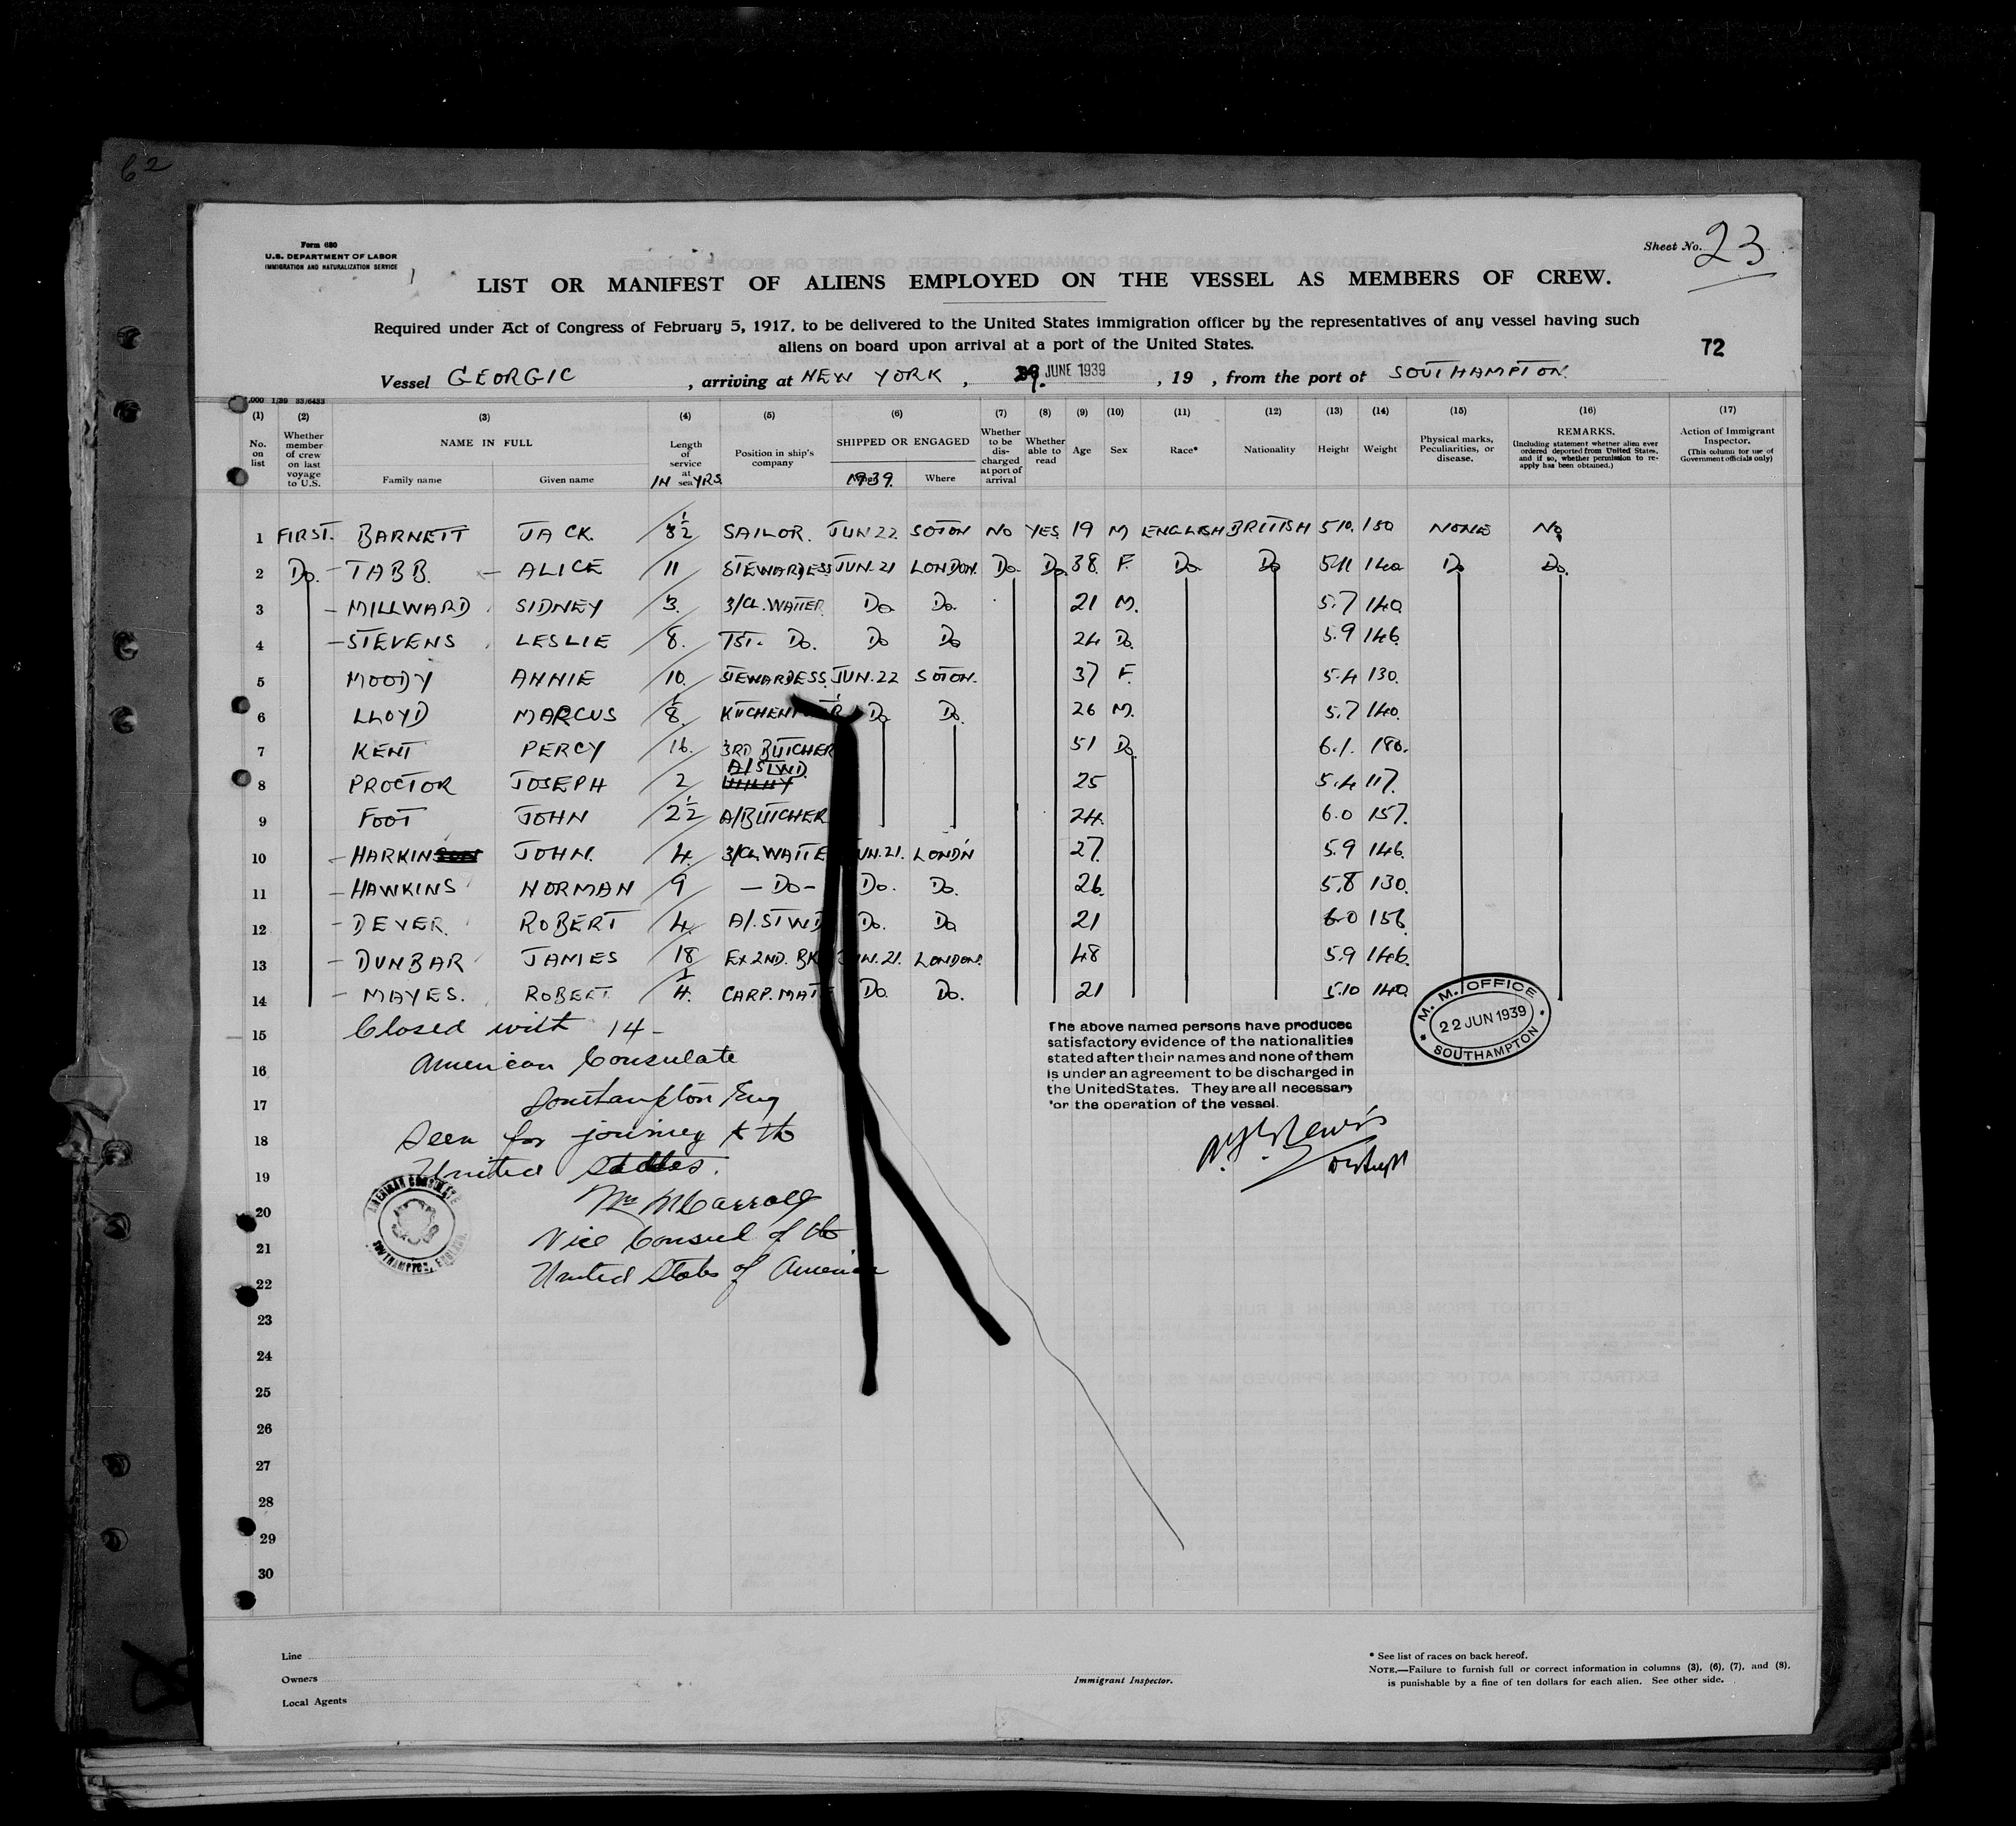 62
Form 680
U.S. DEPARTMENT OF LABOR
IMMIGRATION AND NATURALIZATION SERVICE
Sheet No. 23
LIST OR MANIFEST OF ALIENS EMPLOYED ON THE VESSEL AS MEMBERS OF CREW.
Required under Act of Congress of February 5, 1917, to be delivered to the United States immigration officer by the representatives of any vessel having such
aliens on board upon arrival at a port of the United States.
72
Vessel GEORGIC, arriving at NEW YORK, JUNE 1939, 19 , from the port of SOUTHAMPTON.
(1) (2) (3) (4) (5) (6) (7) (8) (9) (10) (11) (12) (13) (14) (15) (16) (17)
No. on list
Whether member of crew on last voyage to U.S.
NAME IN FULL
Family name
Given name
Length of service at sea IN YRS.
Position in ship's company
SHIPPED OR ENGAGED
1939.
Where
Whether to be discharged at port of arrival
Whether able to read
Age
Sex
Race*
Nationality
Height
Weight
Physical marks, Peculiarities, or disease.
REMARKS.
(Including statement whether alien ever ordered deported from United States, and if so, whether permission to re-apply has been obtained.)
Action of Immigrant Inspector.
(This column for use of Government officials only)
1 FIRST. BARNETT JACK. SAILOR. JUN 22 SOTON NO YES 19 M ENGLISH BRITISH 5 10. 150 NONE NO
2 Do. - TABB. - ALICE 11 STEWARDESS JUN. 21 LONDON. Do Do 38 F. Do Do 5 11 140 Do Do.
3 - MILLWARD SIDNEY 3. 3/CL. WAITER Do Do. 21 M. 5.7 140
4 - STEVENS LESLIE 8. TST. Do. Do Do 24 Do. 5.9 146
5 MOODY ANNIE 10. STEWARDESS. JUN. 22 SOTON. 37 F. 5.4 130.
6 LLOYD MARCUS Do Do. 26 M. 5.7 140.
7 KENT PERCY 16. 3RD BUTCHER 51 Do 6.1. 180.
8 PROCTOR JOSEPH 2 A/STWD. 25 5.4 117.
9 FOOT JOHN 2½ A/BUTCHER 24. 6.0 157.
10 - HARKIN JOHN. 4. 3/CL WAITE UN. 21. LOND'N 27. 5.9 146.
11 - HAWKINS NORMAN 9 - Do - Do. Do. 26. 5.8 130.
12 - DEVER ROBERT 4. A/. STWD Do. Do 21 6.0 156.
13 - DUNBAR JAMES 18 EX 2ND. BK UN. 21. LONDON. 48 5.9 146.
14 - MAYES. ROBERT CARP. MAT Do. Do. 21 5.10 140.
15 Closed with 14 -
16 American Consulate
17 Southampton Eng
18 Seen for journey to the
19 United States.
20
21 Vice Consul of the
22 United States of America
23
24
25
26
27
28
29
30
The above named persons have produced
satisfactory evidence of the nationalities
stated after their names and none of them
is under an agreement to be discharged in
the United States. They are all necessary
for the operation of the vessel.
M. M. OFFICE
22 JUN 1939
SOUTHAMPTON
AMERICAN CONSULATE
SOUTHAMPTON, ENGLAND.
Line
Owners
Local Agents
Immigrant Inspector.
* See list of races on back hereof.
NOTE.—Failure to furnish full or correct information in columns (3), (6), (7), and (8),
is punishable by a fine of ten dollars for each alien. See other side.